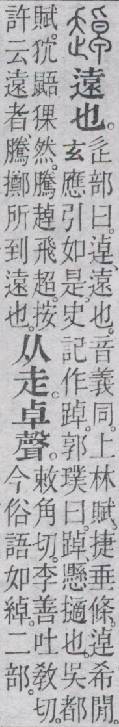 遠也。
辵部曰。逴、遠也。音義同。上林賦。捷垂條。逴希閒。
玄應引如是。史記作踔。郭璞曰。踔懸擿也。吳都
賦。狖鼯猓然。騰趠飛超。按
許云遠者。騰擲所到遠也。
从走。卓聲。
敕角切。李善吐敎切。
今俗語如綽。二部。